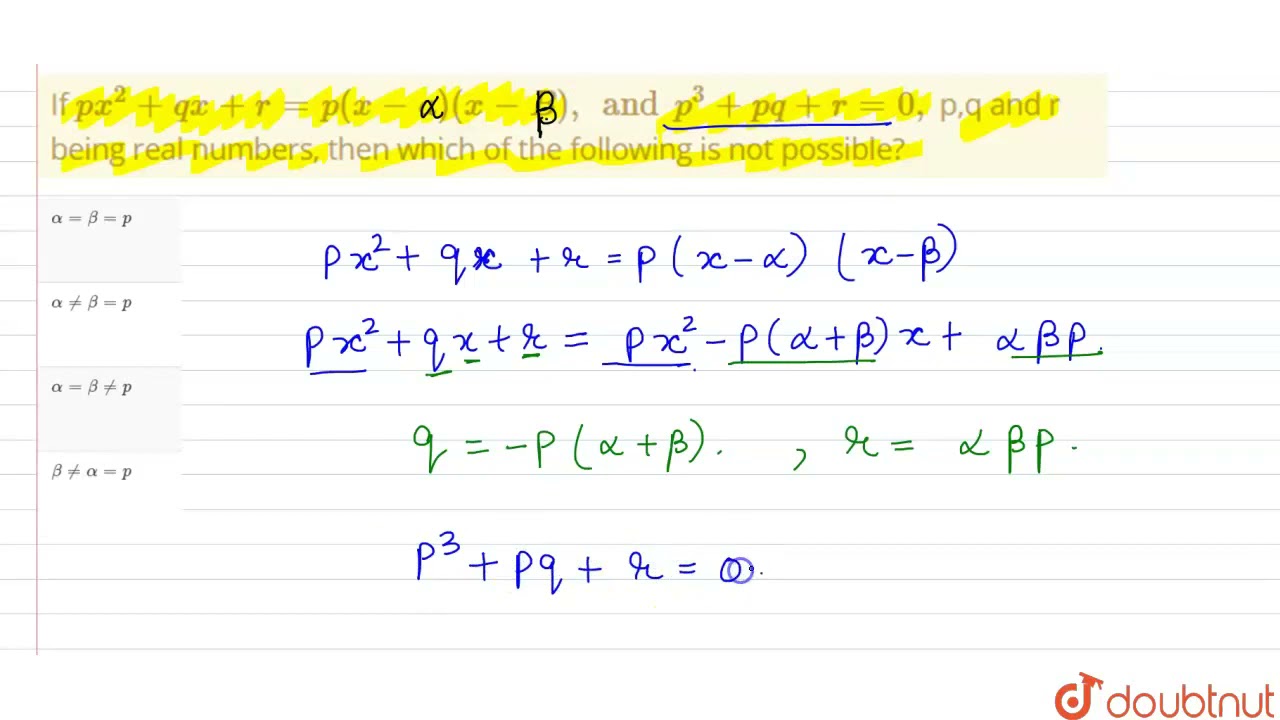 If px² + qx + r = p(x − α)(x − β), and p³ + pq + r = 0, p,q and r
being real numbers, then which of the following is not possible?
α = β = p
px² + qx + r = p(x − α) (x − β)
α ≠ β = p
px² + qx + r = px² − p(α + β)x + αβp.
α = β ≠ p
q = −p(α + β). , r = αβp.
β ≠ α = p
p³ + pq + r = 0.
doubtnut